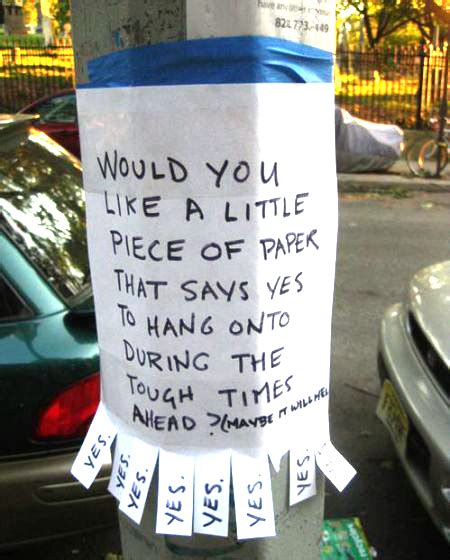 have any
WOULD YOU
LIKE A LITTLE
PIECE OF PAPER
THAT SAYS YES
TO HANG ONTO
DURING THE
TOUGH TIMES
AHEAD ? (MAYBE IT WILL HEL
YES.
YES.
YES.
YES.
YES.
YES.
YES.